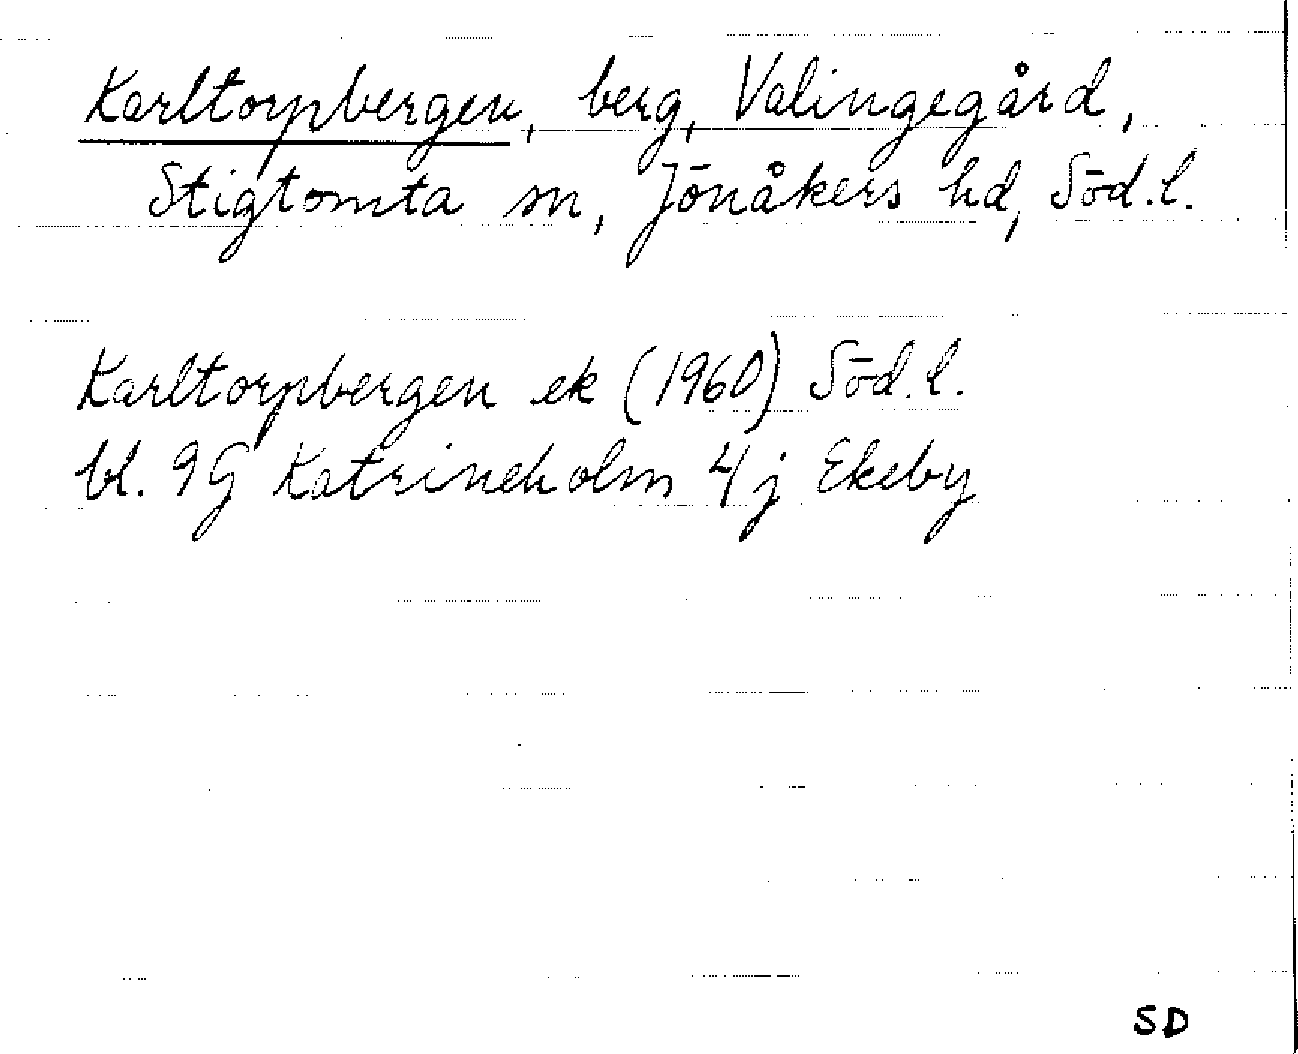 Karltorpbergen, berg, Valingegård,
Stigtomta sn, Jönåkers hd, Söd.l.
Karltorpbergen ek (1960) Söd.l.
bl. 9G Katrineholm 4j Ekeby
SD